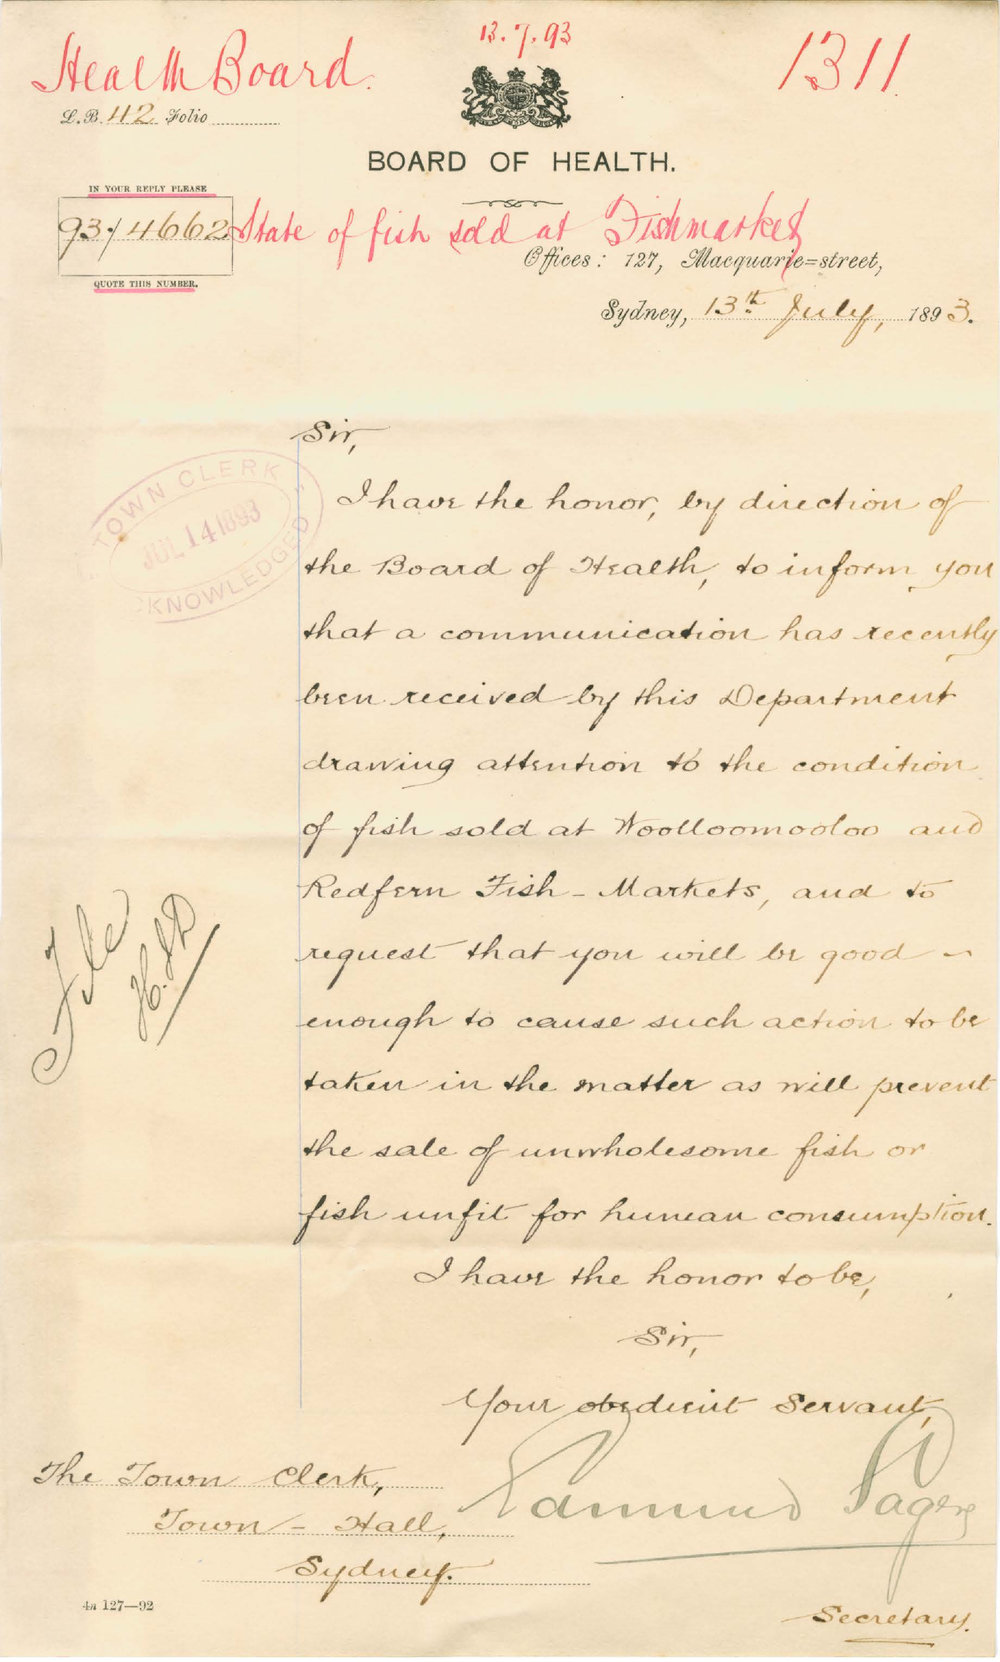 13.7.93
Health Board.
1311
L.B. 42 Folio
BOARD OF HEALTH.
IN YOUR REPLY PLEASE
93/4662
QUOTE THIS NUMBER.
State of fish sold at Fishmarket
Offices: 127, Macquarie=street,
Sydney, 13th July, 1893.
TOWN CLERK
JUL 14 1893
KNOWLEDGED
Sir,
I have the honor, by direction of
the Board of Health, to inform you
that a communication has recently
been received by this Department
drawing attention to the condition
of fish sold at Woolloomooloo and
Redfern Fish-Markets, and to
request that you will be good
enough to cause such action to be
taken in the matter as will prevent
the sale of unwholesome fish or
fish unfit for human consumption.
I have the honor to be,
Sir,
Your obedient Servant,
Edmund Sager
Secretary.
File
The Town Clerk,
Town-Hall,
Sydney.
127—92